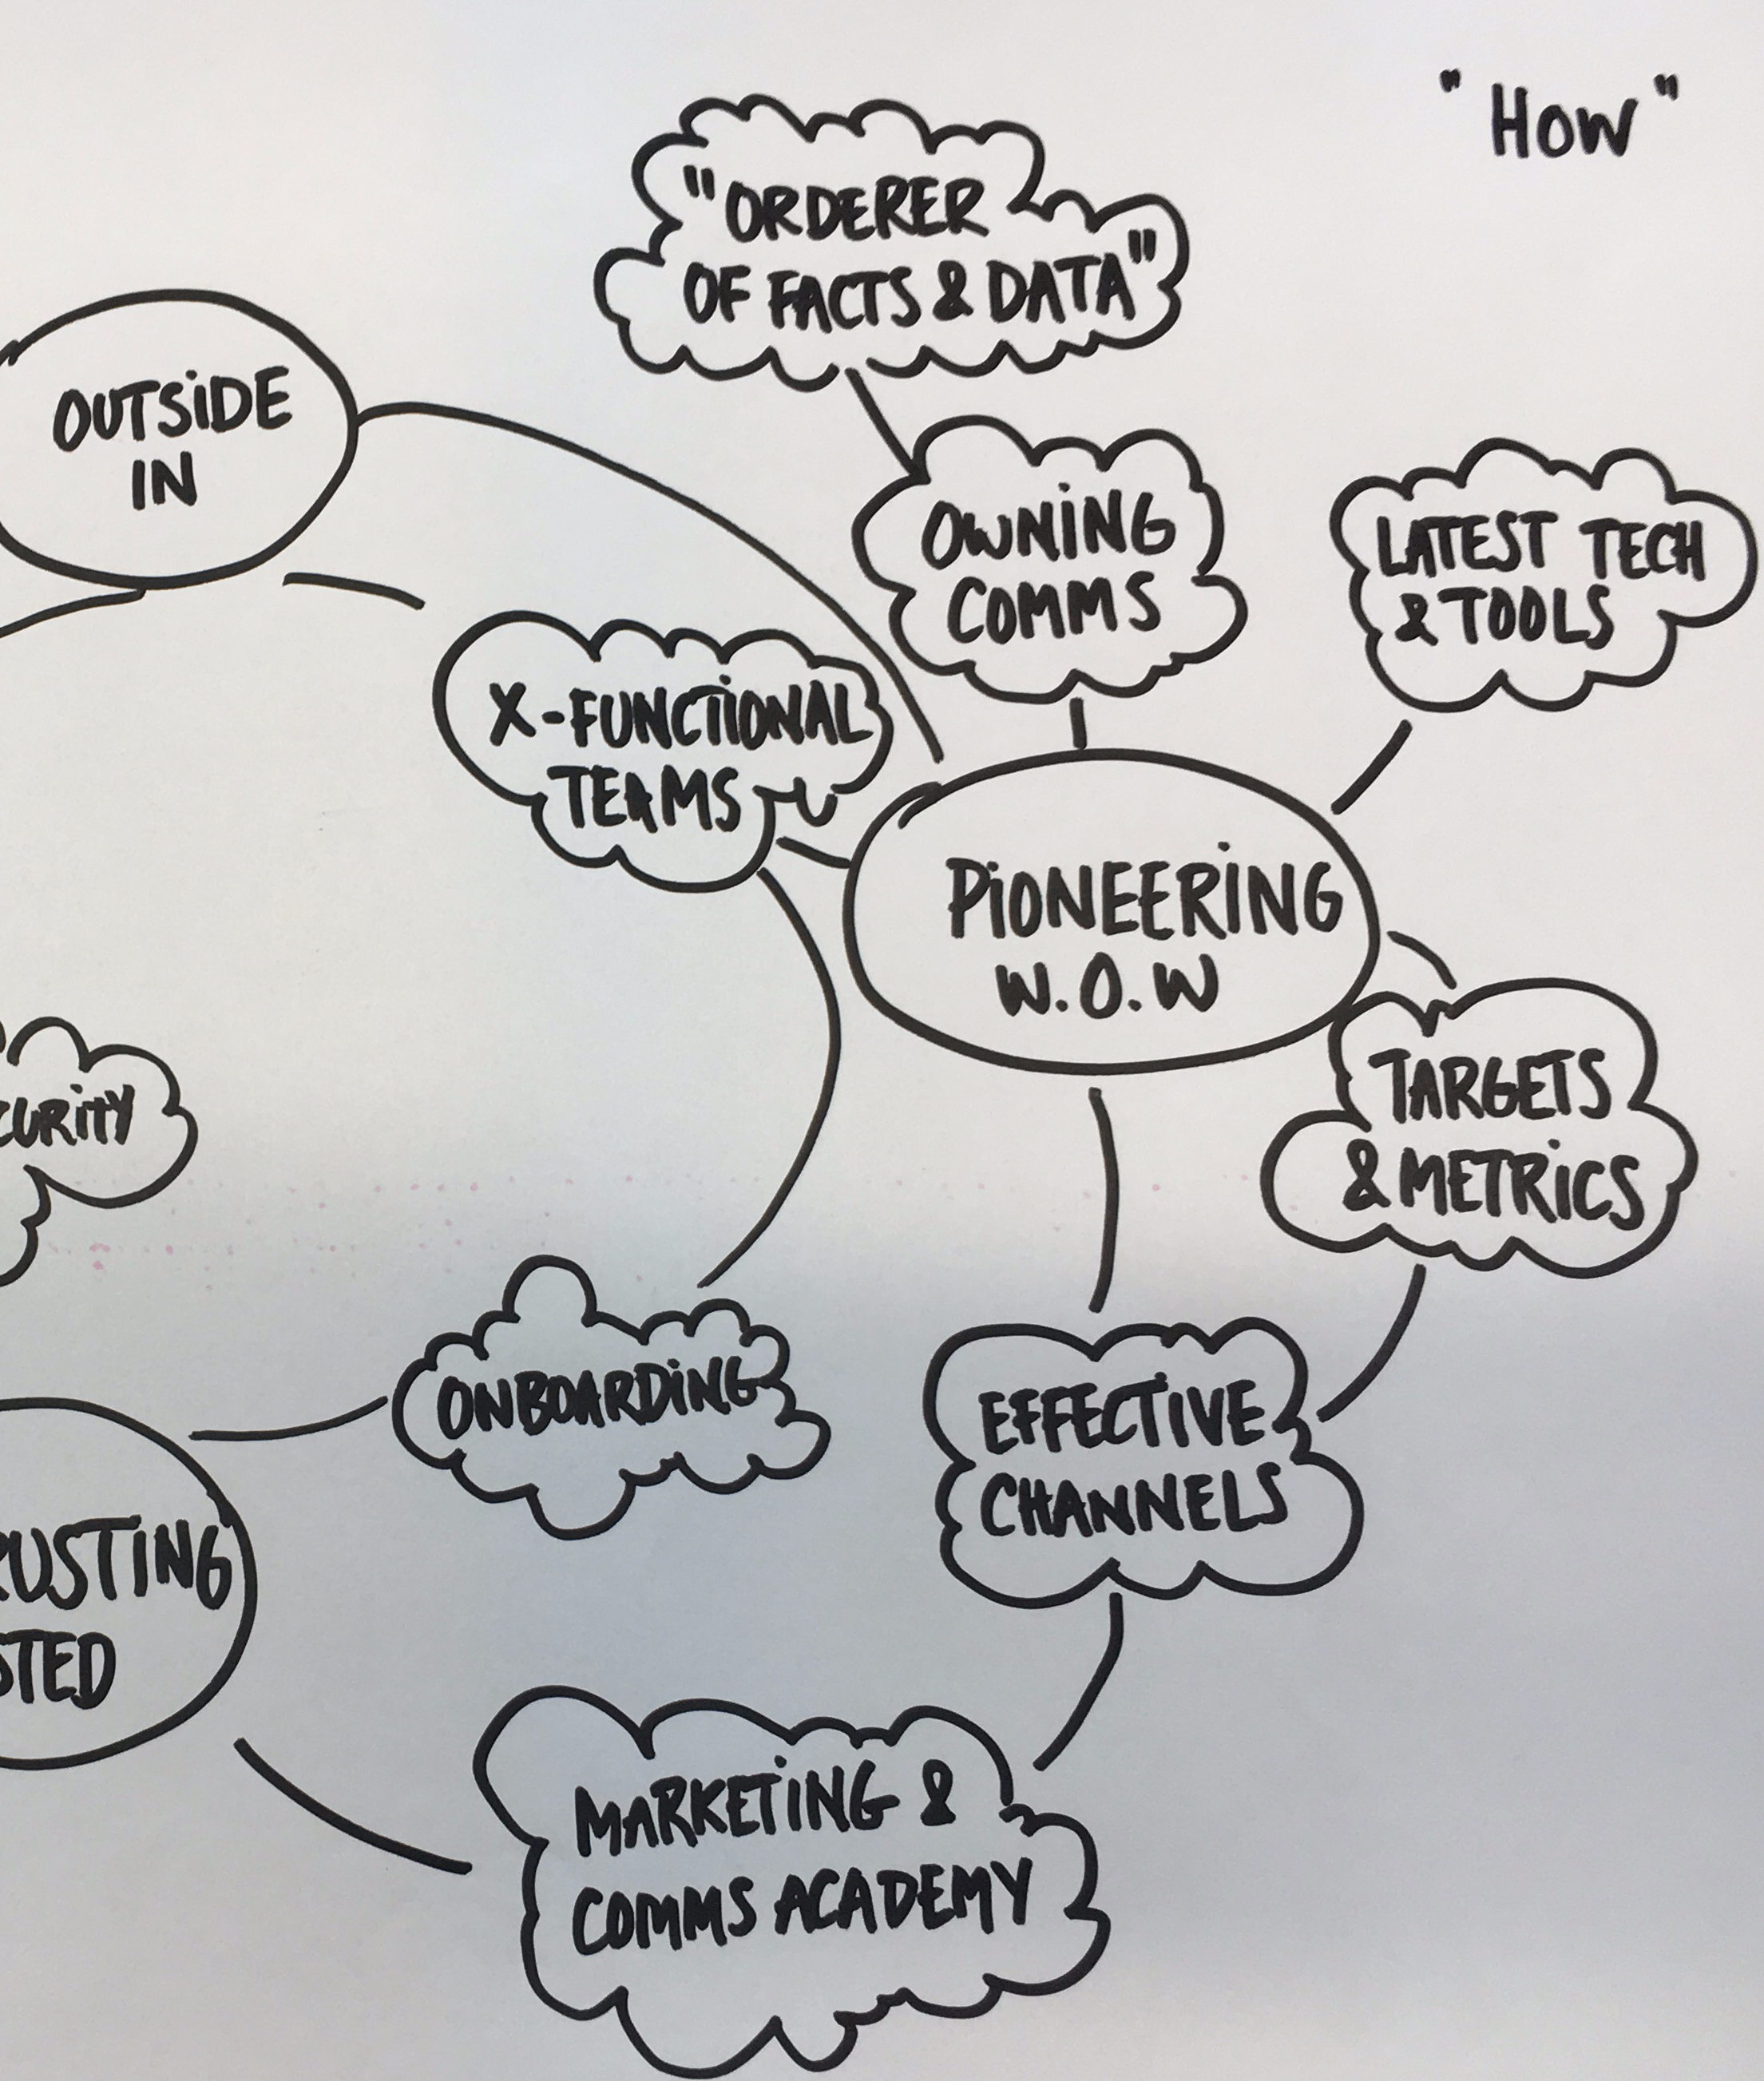 "How"
"ORDERER
OF FACTS & DATA"
OUTSiDE
IN
OWNiNG
COMMS
LATEST TECH
& TOOLS
X-FUNCTiONAL
TEAMS
PiONEERiNG
W.O.W
TARGETS
& METRiCS
CURiTY
ONBOARDiNG
EFFECTiVE
CHANNELS
RUSTiNG
STED
MARKETiNG &
COMMS ACADEMY